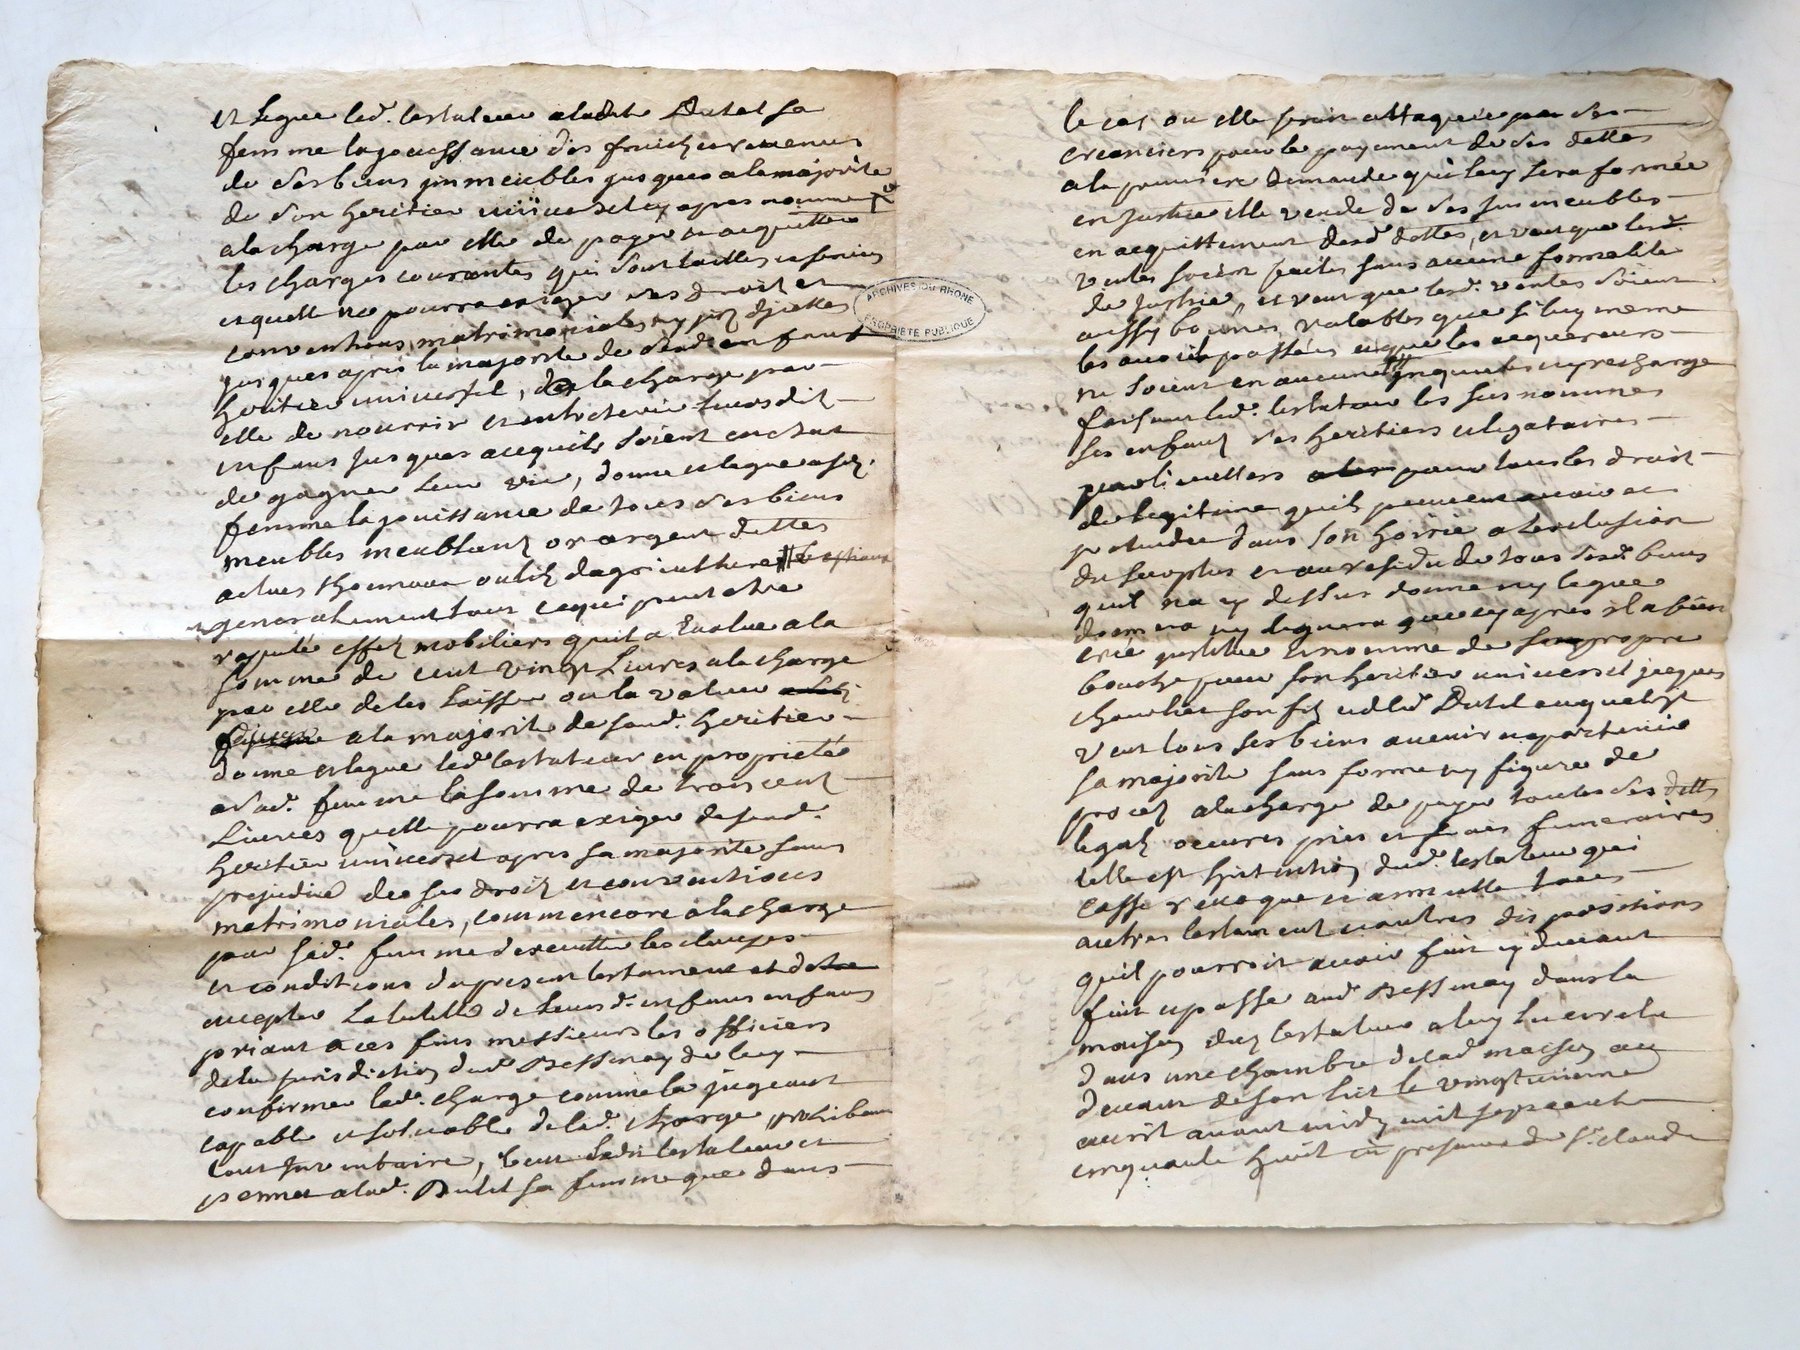 et legue led. testateur aladite Dutel sa
femme la jouissance des fruich et revenus
de ses biens jmmeubles jusques a la majorite
de son heritier universel cy apres nommé
ala charge par elle de payer et acquitter
les charges courantes qui sont tailles et servis
et quelle ne pourra exiger ses droits et
conventions matrimoniales ny
jusques apres la majorite de sond. enfant
heritier universel, de la charge par
elle de nourrir et entretenir leursdits
enfans jusques acequils soient en etat
de gagner leur vie, donne et legue a sad.
femme la jouissance de tous ses biens
meubles meublant or argent dettes
actives outils dagriculture bestiaux
generalement tout ce qui peut etre
reputé effets mobiliers quil a Evalué a la
somme de cent vingt Livres a la charge
par elle de les laisser ou la valeur
a la majorite de sond. heritier
donne et legue led. testateur en proprieté
a sad. femme la somme de trois cent
Livres quelle pourra exiger de sond.
heritier universel apres sa majorite sans
prejudice de ses droits et conventions
matrimoniales, comm encore a la charge
par sad. femme dexecutter les clauses
et conditions du present testament et
accepter La tutelle de leurs d. enfans enfans
priant a ces fins messieurs les officiers
de la jurisdiction dud. Bessenay de luy
confirmer lad. charge comme la jugeant
capable et solvable de lad. charge, prohibant
tout jnventaire, veut ledit testateur et
permet a lad. Dutel sa femme que dans
le cas ou elle seroit attaquée par des
creanciers pour le payement de ses dettes
a la premiere demande qui luy sera formée
en justice elle vende de ses jmmeubles
en acquittement desd. dettes, et veut que lesd.
ventes soient faites sans aucune formalite
de justice, et veut que lesd. ventes soient
aussy bonnes valables que si luy meme
les avoit passées et que les acquereurs
ne soient en aucune jnquietes ny recherge
faisant led. testateur les sus nommes
ses enfans ses heritiers et legataires
particuliers pour tous les droits
de legitime quils peuvent avoir et
pretendre dans son hoirie a lexclusion
du surplus et au residu de tous sesd. biens
quil na cy dessus donne ny legue
donnera ny leguera que cy apres il a fait
crée jnstitue et nomme de sa propre
bouche pour son heritier universel jacques
son fils et dela d. Dutel auquel il
veut tous ses biens avenir et apartenir
sa majorite sans forme ny figure de
procès a la charge de payer toutes ses dettes
legats oeuvres pies et frais funeraires
telle est lintention dud. testateur qui
casse revoque et annulle tous
autres testament et autres dispositions
quil pourroit avoir fait cy devant
fait et passé aud. Bessenay dans la
maison dud. testateur a luy lu et relu
dans une chambre de lad. maison au
devant de son lit le vingtunieme
aoust avant midy mil sept cent
cinquante huit en presence de Sr. claude
ARCHIVES DU RHONE
PROPRIETE PUBLIQUE